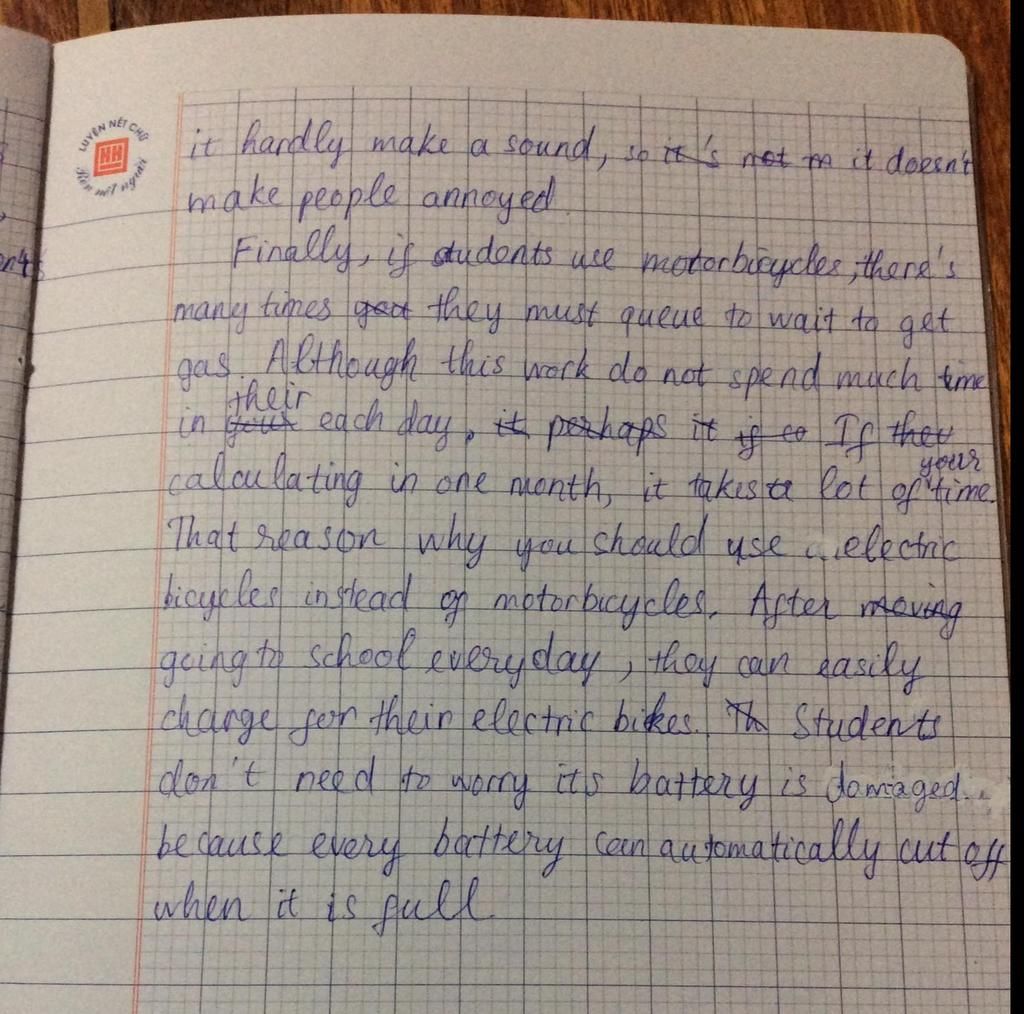 LUYỆN NÉT CHỮ
HH
Rèn nết người
it hardly make a sound, so it's not m it doesn't
make people annoyed.
Finally, if students use motorbicycles, there's
many times they must queue to wait to get
gas. Although this work do not spend much time
their
in your each day, it perhaps it if so If they
your
calculating in one month, it takes a lot of time.
That reason why you should use electric
bicycles instead of motorbicycles. After moving
going to school everyday, they can easily
charge for their electric bikes. Th Students
don't need to worry its battery is damaged.
because every battery can automatically cut off
when it is full